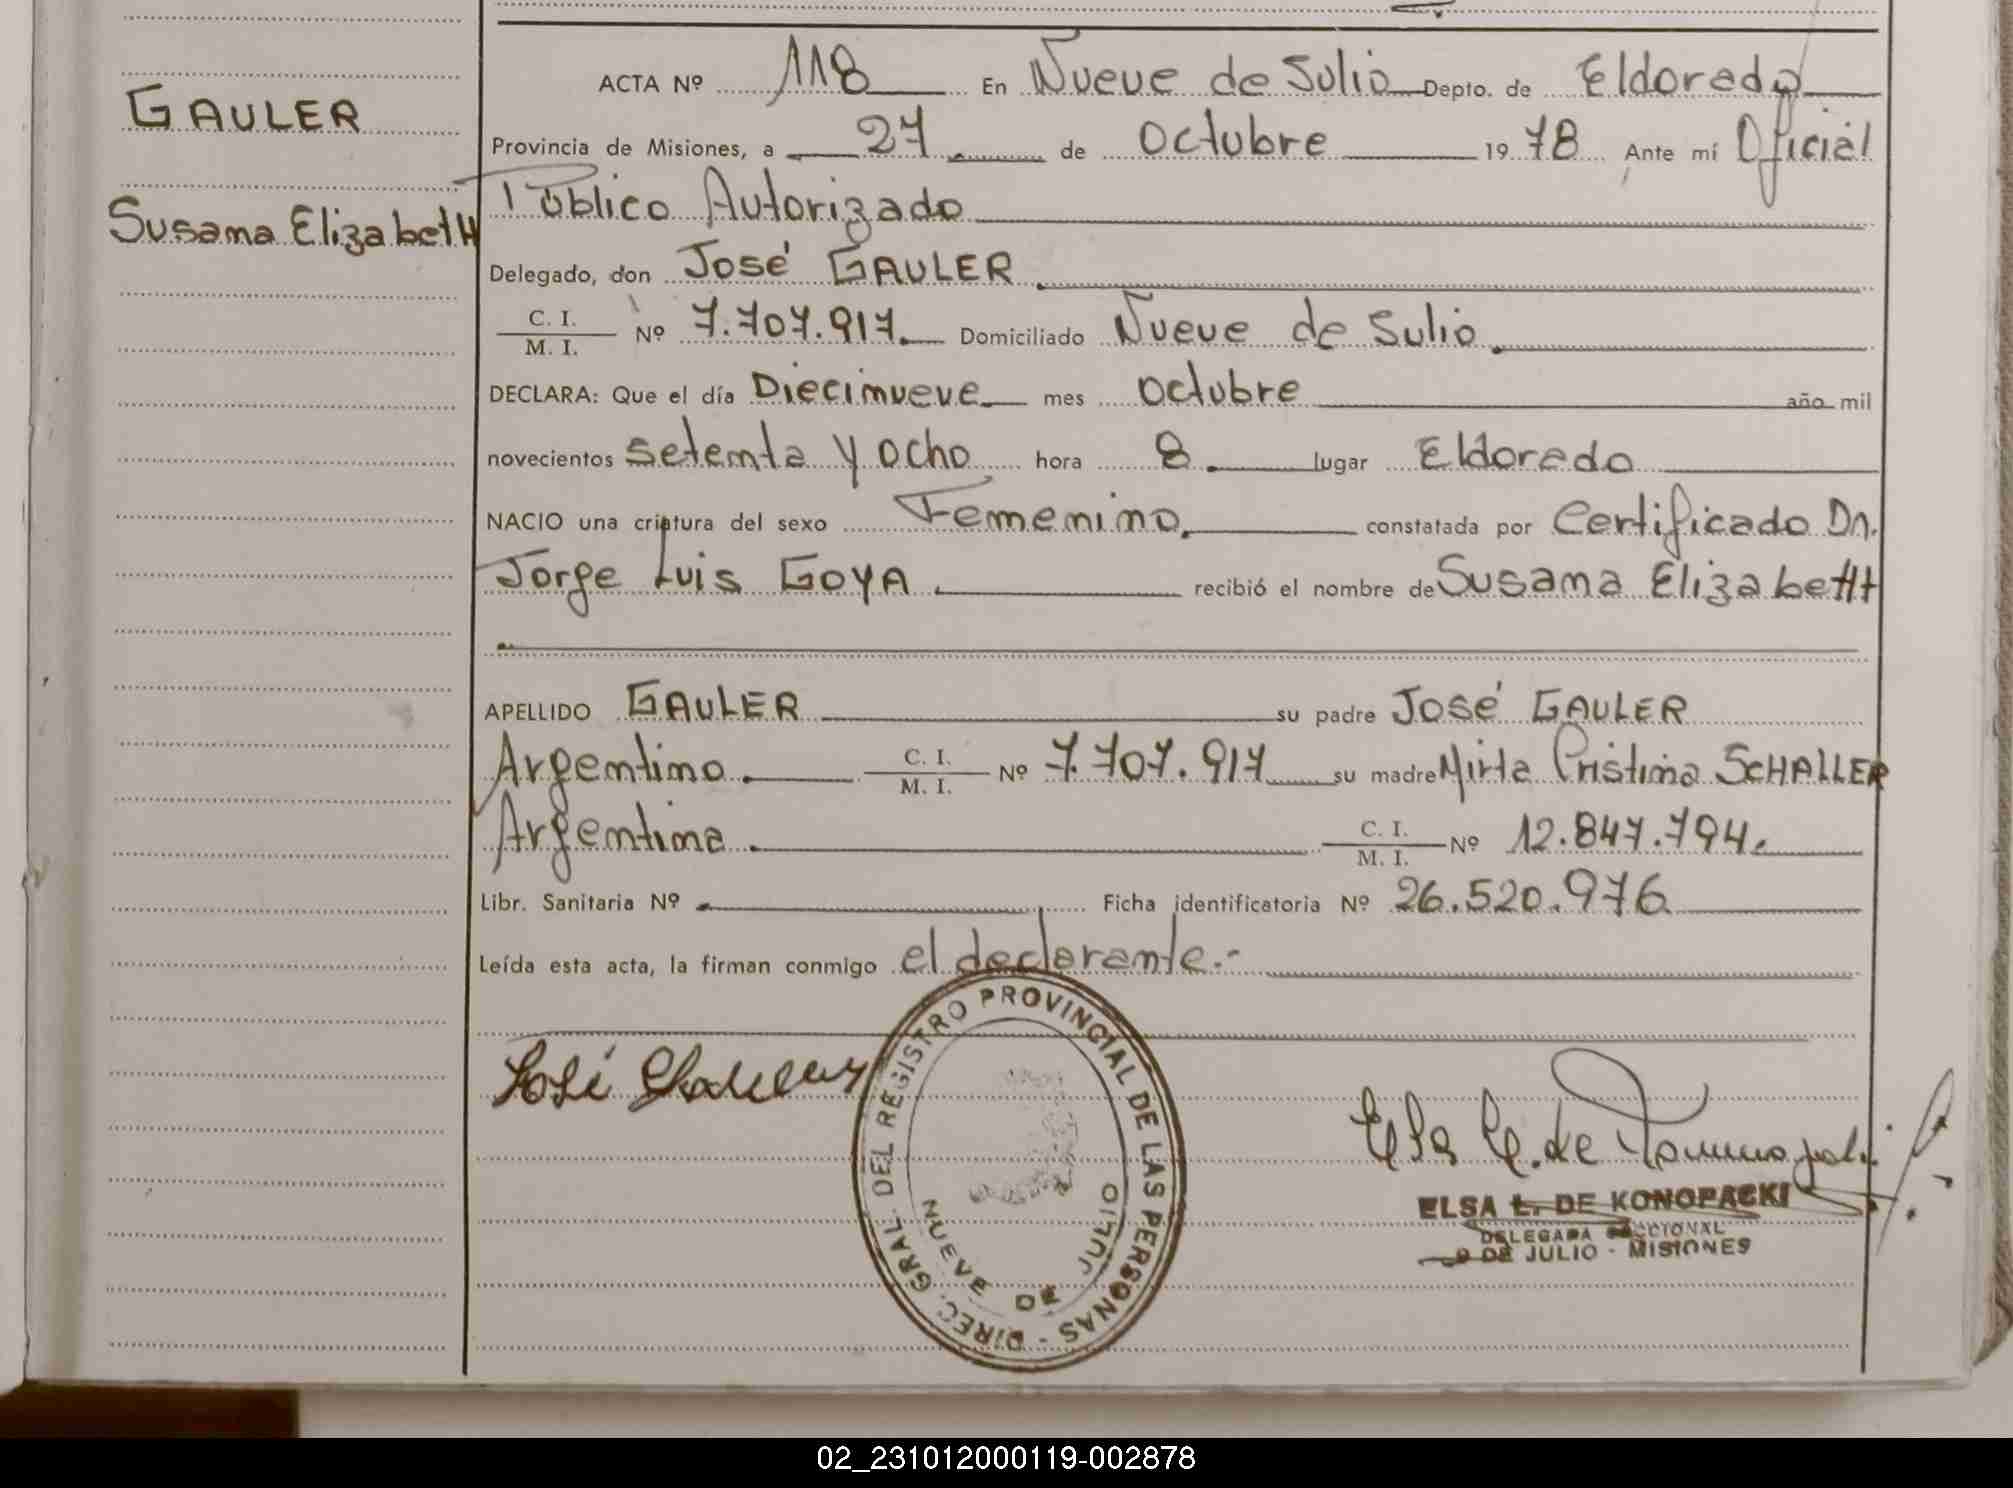 GAULER
Susana Elizabeth
ACTA Nº 118 En Nueve de Julio Depto. de Eldorado
Provincia de Misiones, a 27 de Octubre 1978 Ante mí Oficial
Público Autorizado
Delegado, don José GAULER
C. I.
M. I. Nº 7.707.917. Domiciliado Nueve de Julio
DECLARA: Que el día Diecinueve mes Octubre año mil
novecientos setenta y ocho hora 8 lugar Eldorado
NACIO una criatura del sexo Femenino constatada por Certificado Dn.
Jorge Luis GOYA recibió el nombre de Susana Elizabeth
APELLIDO GAULER su padre José GAULER
Argentino C. I.
M. I. Nº 7.707.917 su madre Mirta Cristina SCHALLER
Argentina C. I.
M. I. Nº 12.847.794.
Libr. Sanitaria Nº Ficha identificatoria Nº 26.520.976
Leída esta acta, la firman conmigo el declarante.-
DIREC. GRAL. DEL REGISTRO PROVINCIAL DE LAS PERSONAS -
NUEVE DE JULIO
José
Elsa de
ELSA L. DE KONOPACKI
DELEGADA SECCIONAL
9 DE JULIO - MISIONES
02_231012000119-002878